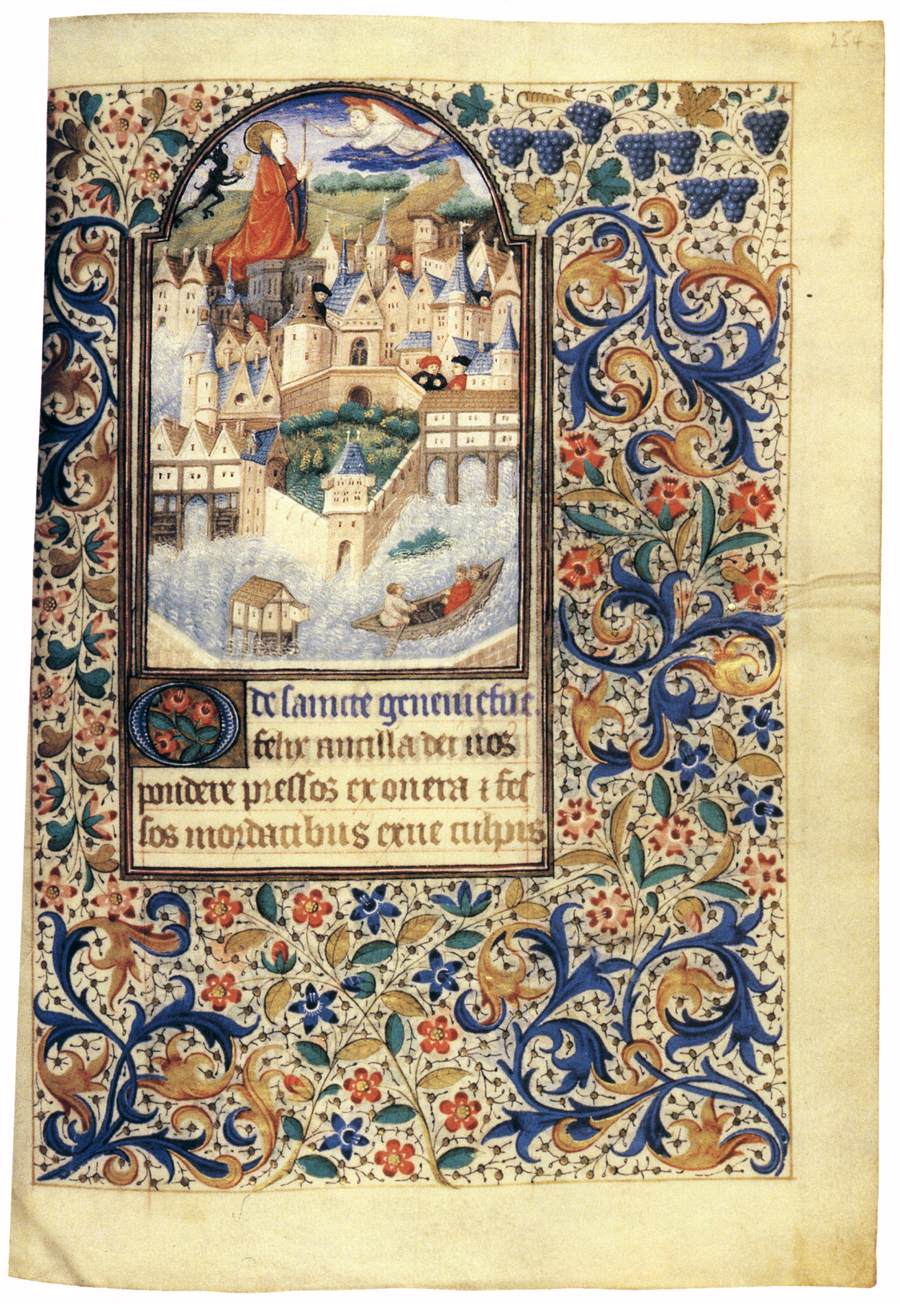 254
de saincte geneuiefue
O felix ancilla dei nos
pondere pressos exonera ⁊ fes
sos mordacibus exue culpis